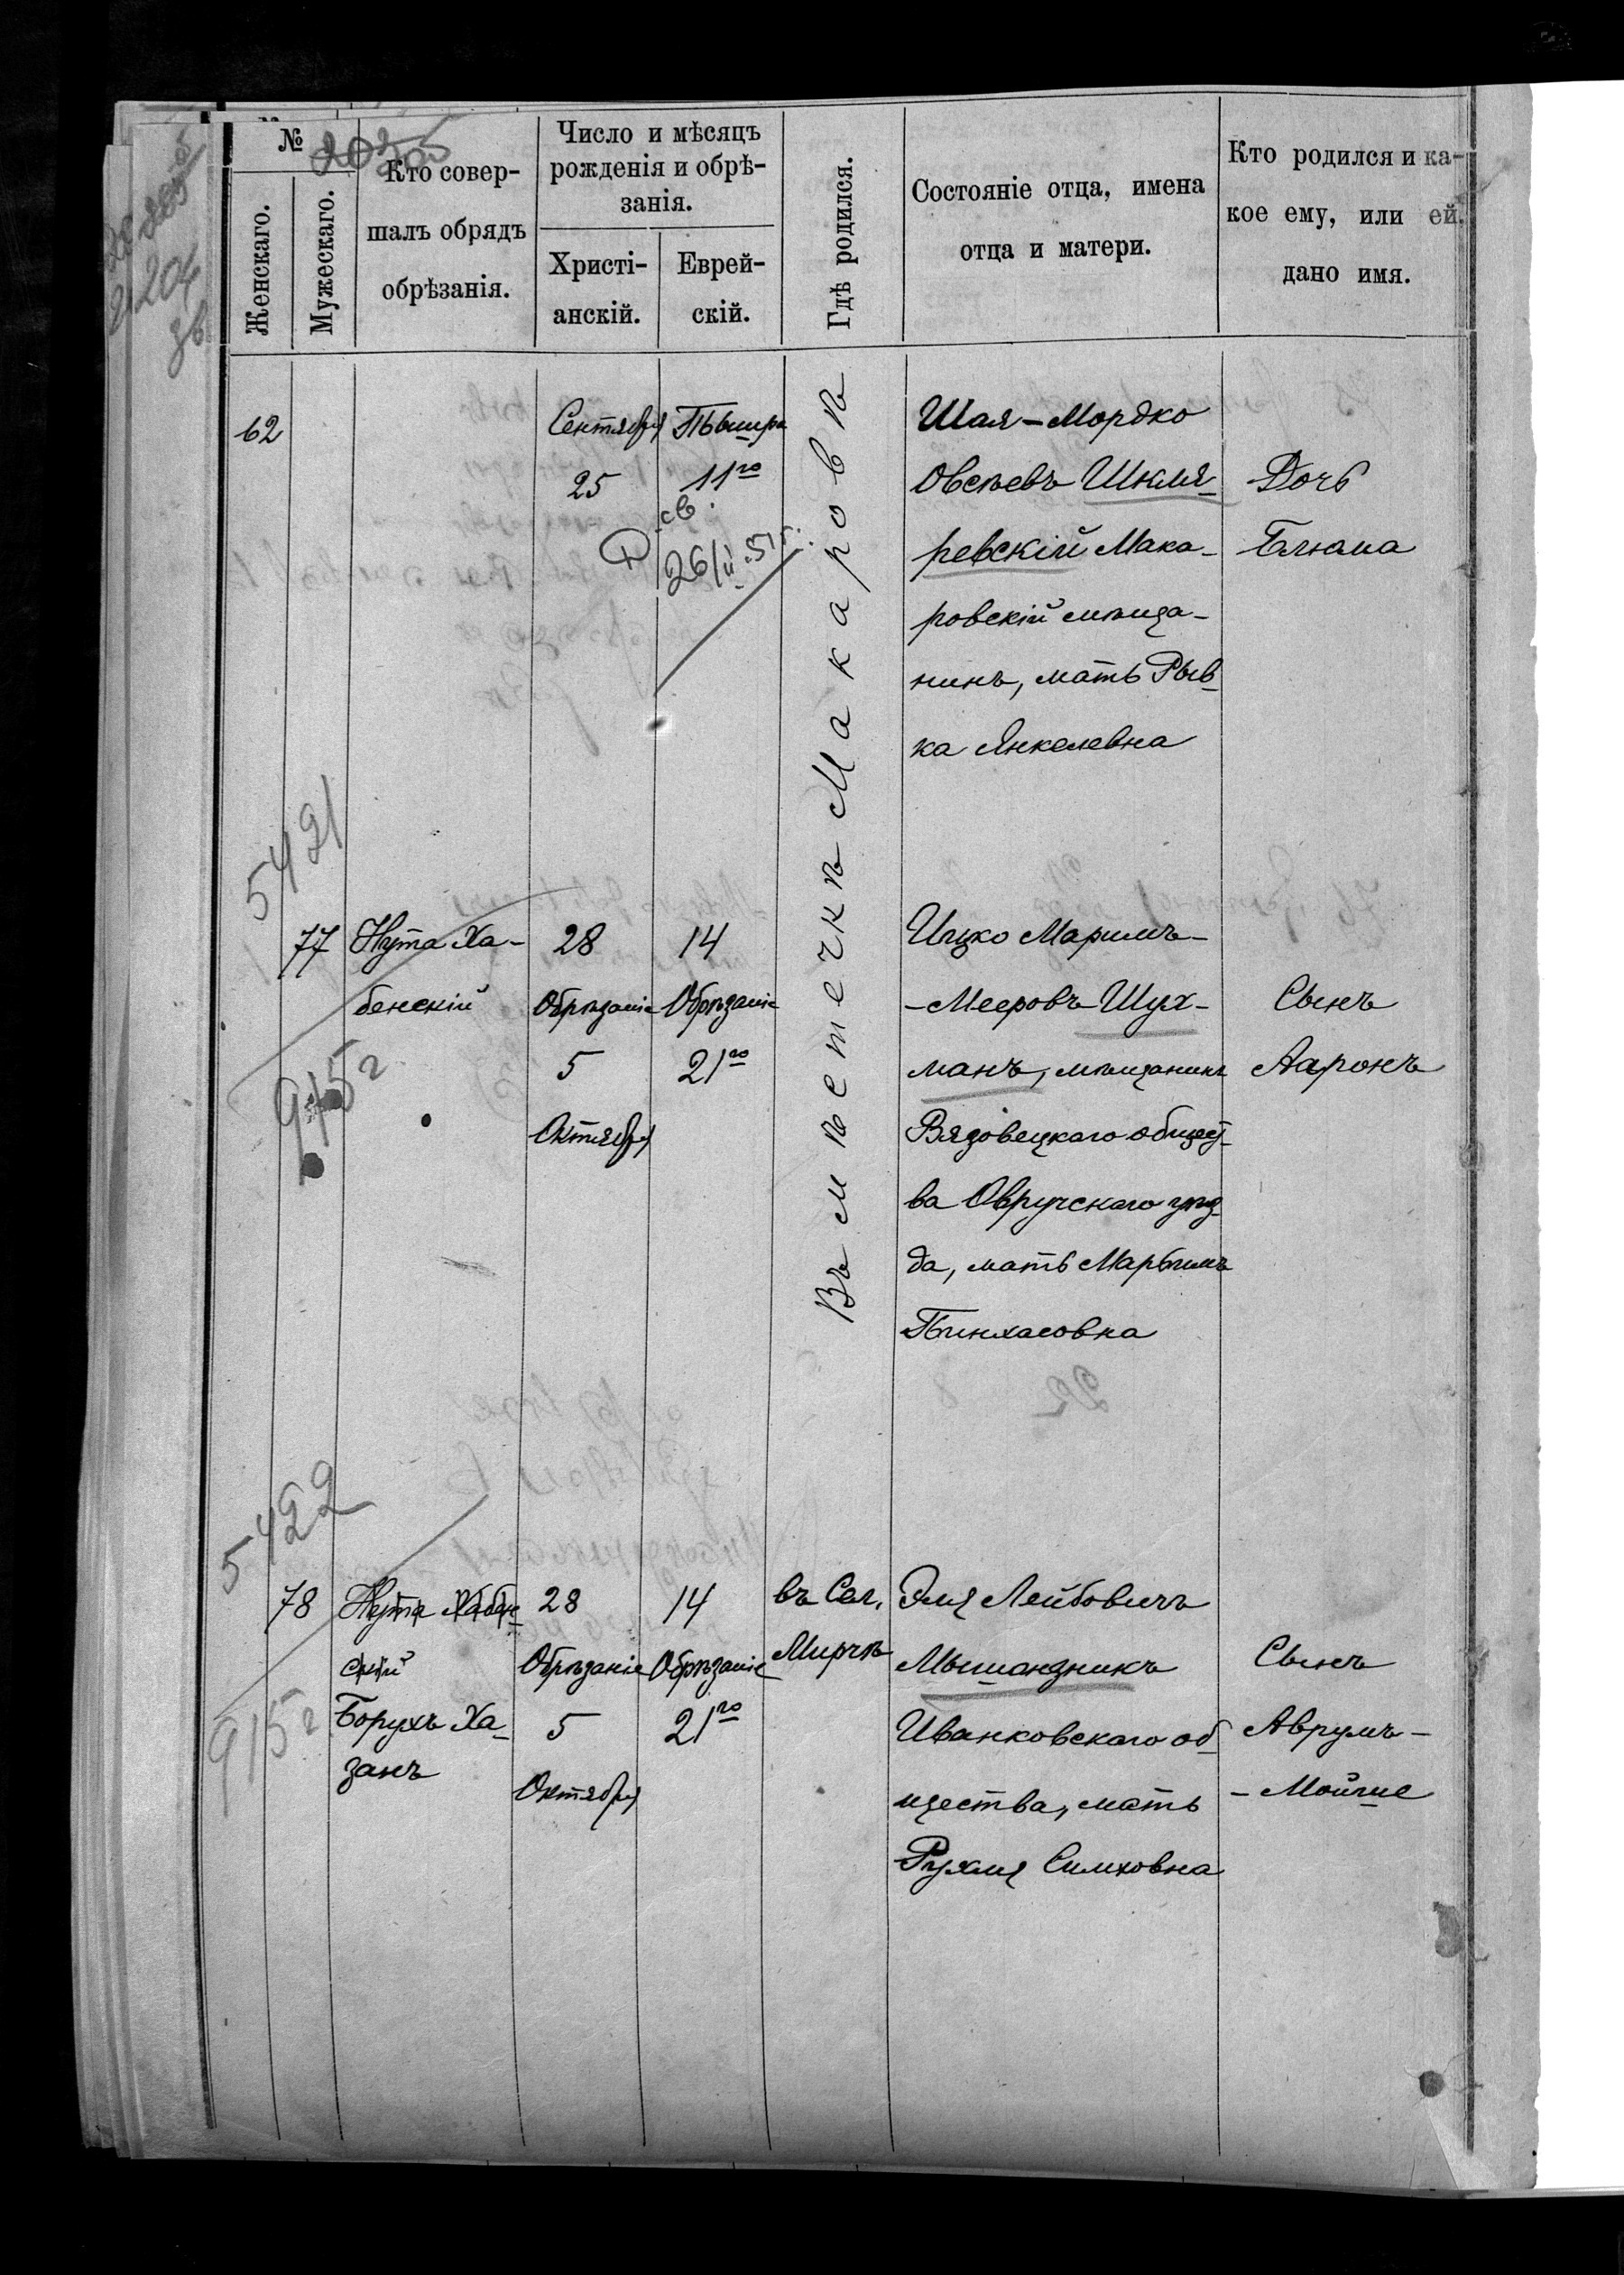 №
205
Женскаго.
Мужескаго.
Кто совер-
шалъ обрядъ
обрѣзанія.
Число и мѣсяцъ
рожденія и обрѣ-
занія.
Христі-
анскій.
Еврей-
скій.
Гдѣ родился.
Состояніе отца, имена
отца и матери.
Кто родился и ка-
кое ему, или ей.
дано имя.
204
Въ мѣстечкѣ Макаровѣ
62
Сентября
25
11го
св.
26/II 51 г.
Шая-Мордко
Овсеевъ Шкля-
ревскій Мака-
ровскій мѣща-
нинъ, мать Рыв-
ка Янкелевна
Дочь
Блюма
5421
77
Нута Ха-
бенскій
915 г
28
Обрѣзаніе
5
Октября
14
Обрѣзаніе
21го
Ицко Маримъ-
-Мееровъ Шух-
манъ, мѣщанинъ
общест-
ва Овручскаго уѣз-
да, мать Марьямъ
Пинхасовна
Сынъ
Ааронъ
5422
78
Нута Хабен-
скій
Борухъ Ха-
занъ
915 г
28
Обрѣзаніе
5
Октября
14
Обрѣзаніе
21го
въ Сел.
Мирчѣ
Эля Лейбовичъ
Иванковскаго об-
щества, мать
Рухля Симховна
Сынъ
Аврумъ-
-Мойше